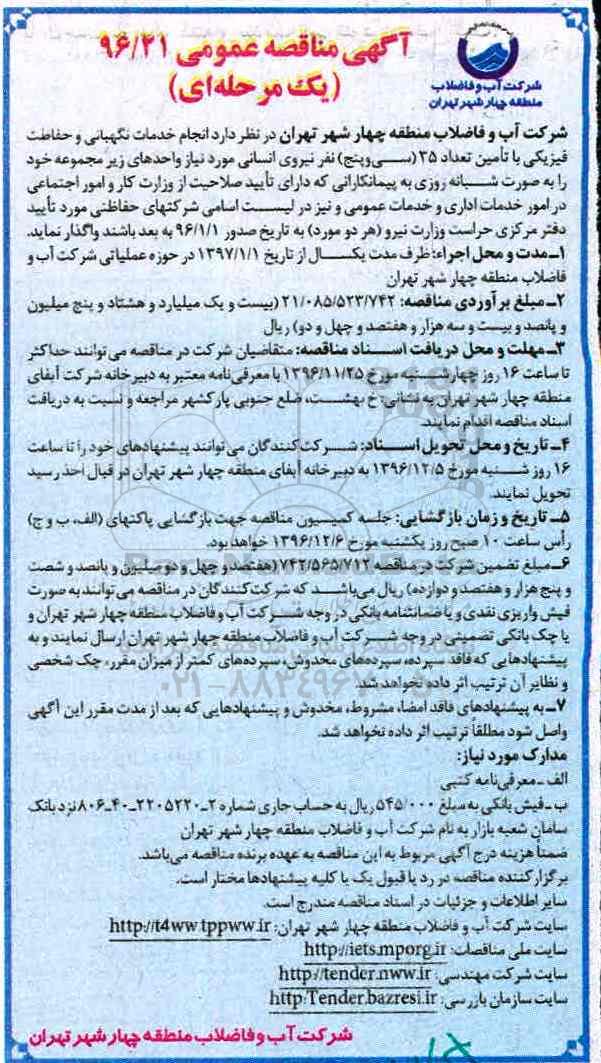 آگهی مناقصه عمومی ۹۶/۲۱
(یک مرحله‌ای)
شرکت آب و فاضلاب
منطقه چهار شهر تهران
شرکت آب و فاضلاب منطقه چهار شهر تهران در نظر دارد انجام خدمات نگهبانی و حفاظت
فیزیکی با تأمین تعداد ۳۵ (سی‌وپنج) نفر نیروی انسانی مورد نیاز واحدهای زیر مجموعه خود
را به صورت شبانه روزی به پیمانکارانی که دارای تأیید صلاحیت از وزارت کار و امور اجتماعی
در امور خدمات اداری و خدمات عمومی و نیز در لیست اسامی شرکتهای حفاظتی مورد تأیید
دفتر مرکزی حراست وزارت نیرو (هر دو مورد) به تاریخ صدور ۹۶/۱/۱ به بعد باشند واگذار نماید.
۱ـ مدت و محل اجراء: ظرف مدت یکسال از تاریخ ۱۳۹۷/۱/۱ در حوزه عملیاتی شرکت آب و
فاضلاب منطقه چهار شهر تهران
۲ـ مبلغ برآوردی مناقصه: ۲۱/۰۸۵/۵۲۳/۷۴۲ (بیست و یک میلیارد و هشتاد و پنج میلیون
و پانصد و بیست و سه هزار و هفتصد و چهل و دو) ریال
۳ـ مهلت و محل دریافت اسناد مناقصه: متقاضیان شرکت در مناقصه می توانند حداکثر
تا ساعت ۱۶ روز چهارشنبه مورخ ۱۳۹۶/۱۱/۲۵ با معرفی‌نامه معتبر به دبیرخانه شرکت آبفای
منطقه چهار شهر تهران به نشانی خ بهشت، ضلع جنوبی پارکشهر مراجعه و نسبت به دریافت
اسناد مناقصه اقدام نمایند.
۴ـ تاریخ و محل تحویل اسناد: شرکت‌کنندگان می توانند پیشنهادهای خود را تا ساعت
۱۶ روز شنبه مورخ ۱۳۹۶/۱۲/۵ به دبیرخانه آبفای منطقه چهار شهر تهران در قبال اخذ رسید
تحویل نمایند.
۵ـ تاریخ و زمان بازگشایی: جلسه کمیسیون مناقصه جهت بازگشایی پاکتهای (الف، ب و ج)
رأس ساعت ۱۰ صبح روز یکشنبه مورخ ۱۳۹۶/۱۲/۶ خواهد بود.
۶ـ مبلغ تضمین شرکت در مناقصه ۷۴۲/۵۶۵/۷۱۲ (هفتصد و چهل و دو میلیون و پانصد و شصت
و پنج هزار و هفتصد و دوازده) ریال می‌باشد که شرکت‌کنندگان در مناقصه می توانند به صورت
فیش واریزی نقدی و یا ضمانتنامه بانکی در وجه شرکت آب و فاضلاب منطقه چهار شهر تهران و
یا چک بانکی تضمینی در وجه شرکت آب و فاضلاب منطقه چهار شهر تهران ارسال نمایند و به
پیشنهادهایی که فاقد سپرده، سپرده‌های مخدوش، سپرده‌های کمتر از میزان مقرر، چک شخصی
و نظایر آن ترتیب اثر داده نخواهد شد.
۷ـ به پیشنهادهای فاقد امضا، مشروط، مخدوش و پیشنهادهایی که بعد از مدت مقرر این آگهی
واصل شود مطلقاً ترتیب اثر داده نخواهد شد.
مدارک مورد نیاز:
الف ـ معرفی‌نامه کتبی
ب ـ فیش بانکی به مبلغ ۵۴۵/۰۰۰ ریال به حساب جاری شماره ۲ـ۲۲۰۵۲۲۰ـ۴۰ـ۸۰۶ نزد بانک
سامان شعبه بازار به نام شرکت آب و فاضلاب منطقه چهار شهر تهران
ضمناً هزینه درج آگهی مربوط به این مناقصه به عهده برنده مناقصه می‌باشد.
برگزارکننده مناقصه در رد یا قبول یک یا کلیه پیشنهادها مختار است.
سایر اطلاعات و جزئیات در اسناد مناقصه مندرج است.
سایت شرکت آب و فاضلاب منطقه چهار شهر تهران: http://t4ww.tppww.ir
سایت ملی مناقصات: http://iets.mporg.ir
سایت شرکت مهندسی: http://tender.nww.ir
سایت سازمان بازرسی: http:Tender.bazresi.ir
شرکت آب و فاضلاب منطقه چهار شهر تهران